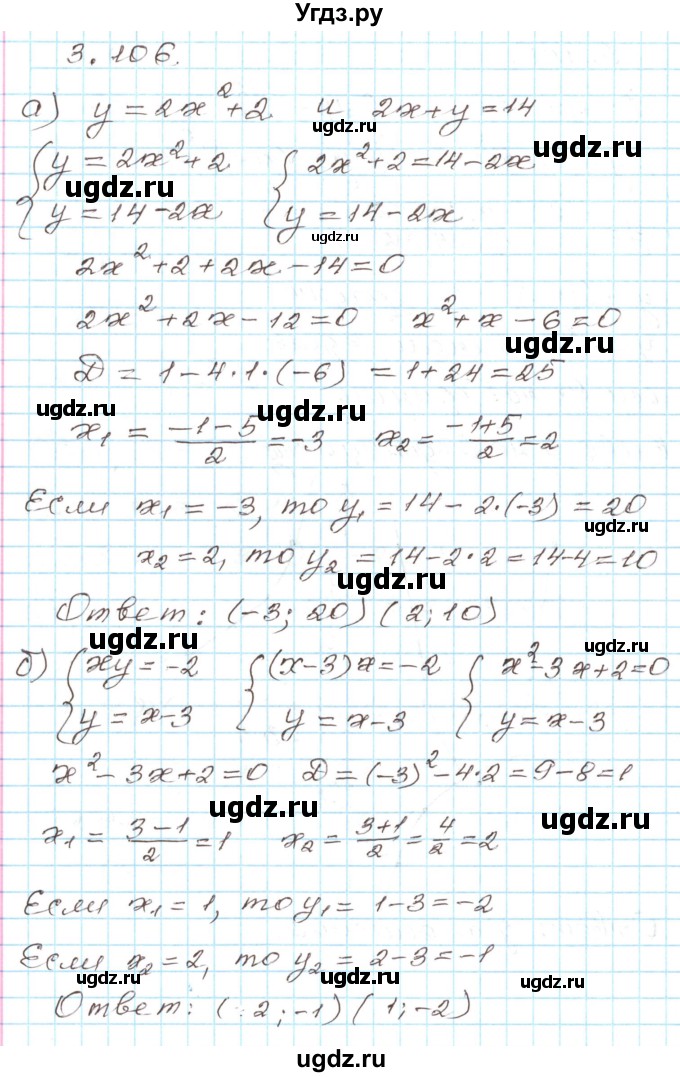 Угдз.ру
3.106.
а) y = 2x²+2 и 2x+y=14
ugdz.ru
{y = 2x²+2 {2x²+2=14-2x
ugdz.ru
ugdz.ru
{y=14-2x {y=14-2x
ugdz.ru
2x²+2+2x-14=0
2x²+2x-12=0 x²+x-6=0
ugdz.ru
D = 1-4·1·(-6) = 1+24=25
ugdz.ru ugdz.ru
x₁ = (-1-5)/2 = -3 x₂ = (-1+5)/2 = 2
Если x₁ = -3, то y₁ = 14-2·(-3) = 20
ugdz.ru
x₂=2, то y₂ = 14-2·2=14-4=10
ugdz.ru
Ответ: (-3; 20) (2; 10)
ugdz.ru
ugdz.ru
б) {xy = -2 {(x-3)x=-2 {x²-3x+2=0
{y = x-3 {y = x-3 {y=x-3
x²-3x+2=0 D=(-3)²-4·2=9-8=1
ugdz.ru
ugdz.ru
x₁ = (3-1)/2 = 1 x₂ = (3+1)/2 = 4/2 = 2
Если x₁ = 1, то y₁ = 1-3 = -2
Если x₂=2, то y₂ = 2-3=-1
ugdz.ru ugdz.ru
Ответ: (2; -1) (1; -2)
ugdz.ru